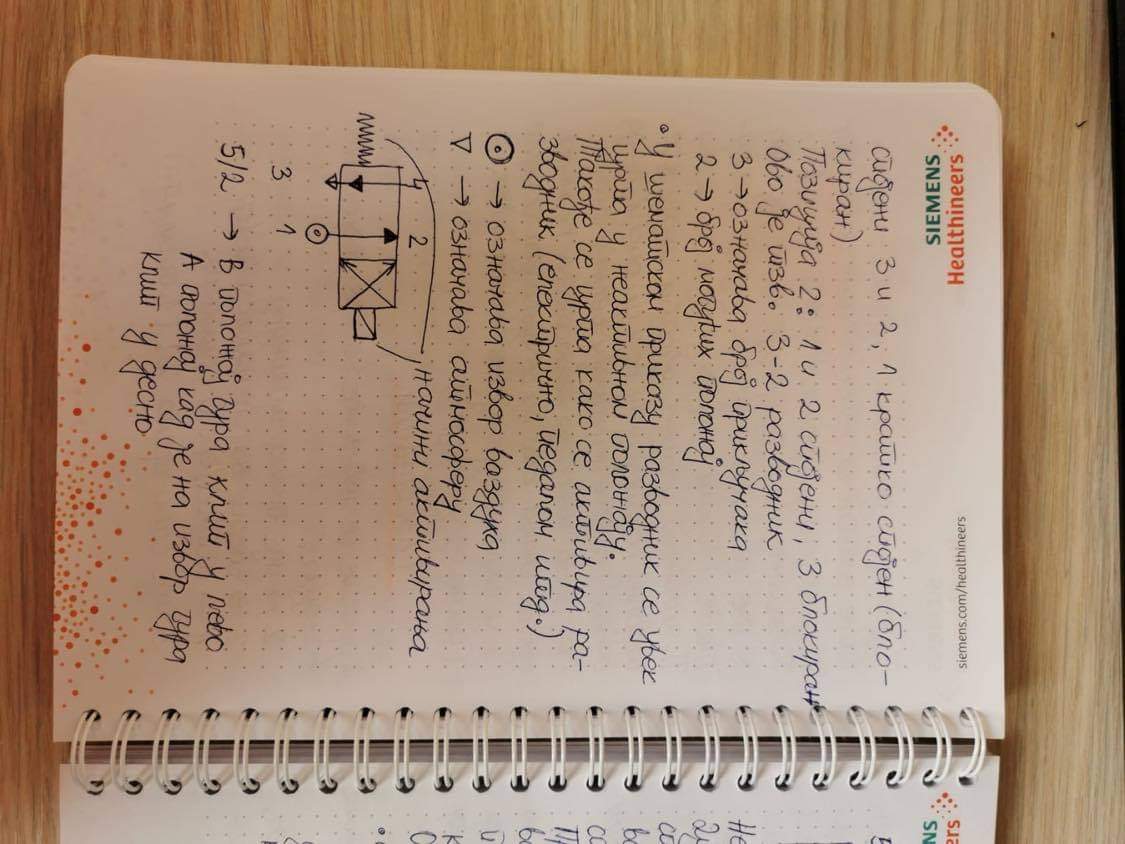 SIEMENS
Healthineers
siemens.com/healthineers
спојени 3 и 2, 1 кратко спојен (бло-
киран)
Позиција 2: 1 и 2 спојени, 3 блокиран
Ово је тзв. 3-2 разводник
3 → означава број прикључака
2 → број могућих положај
• У шематском приказу разводник се увек
црта у неактивном положају.
Такође се црта како се активира ра-
зводник (електрично, педалом итд.)
⊙ → означава извор ваздуха
▽ → означава атмосферу
начини активирања
4 2
3 1
5/2 → В положај гура клип у лево
А положај кад је на извор гура
клип у десно